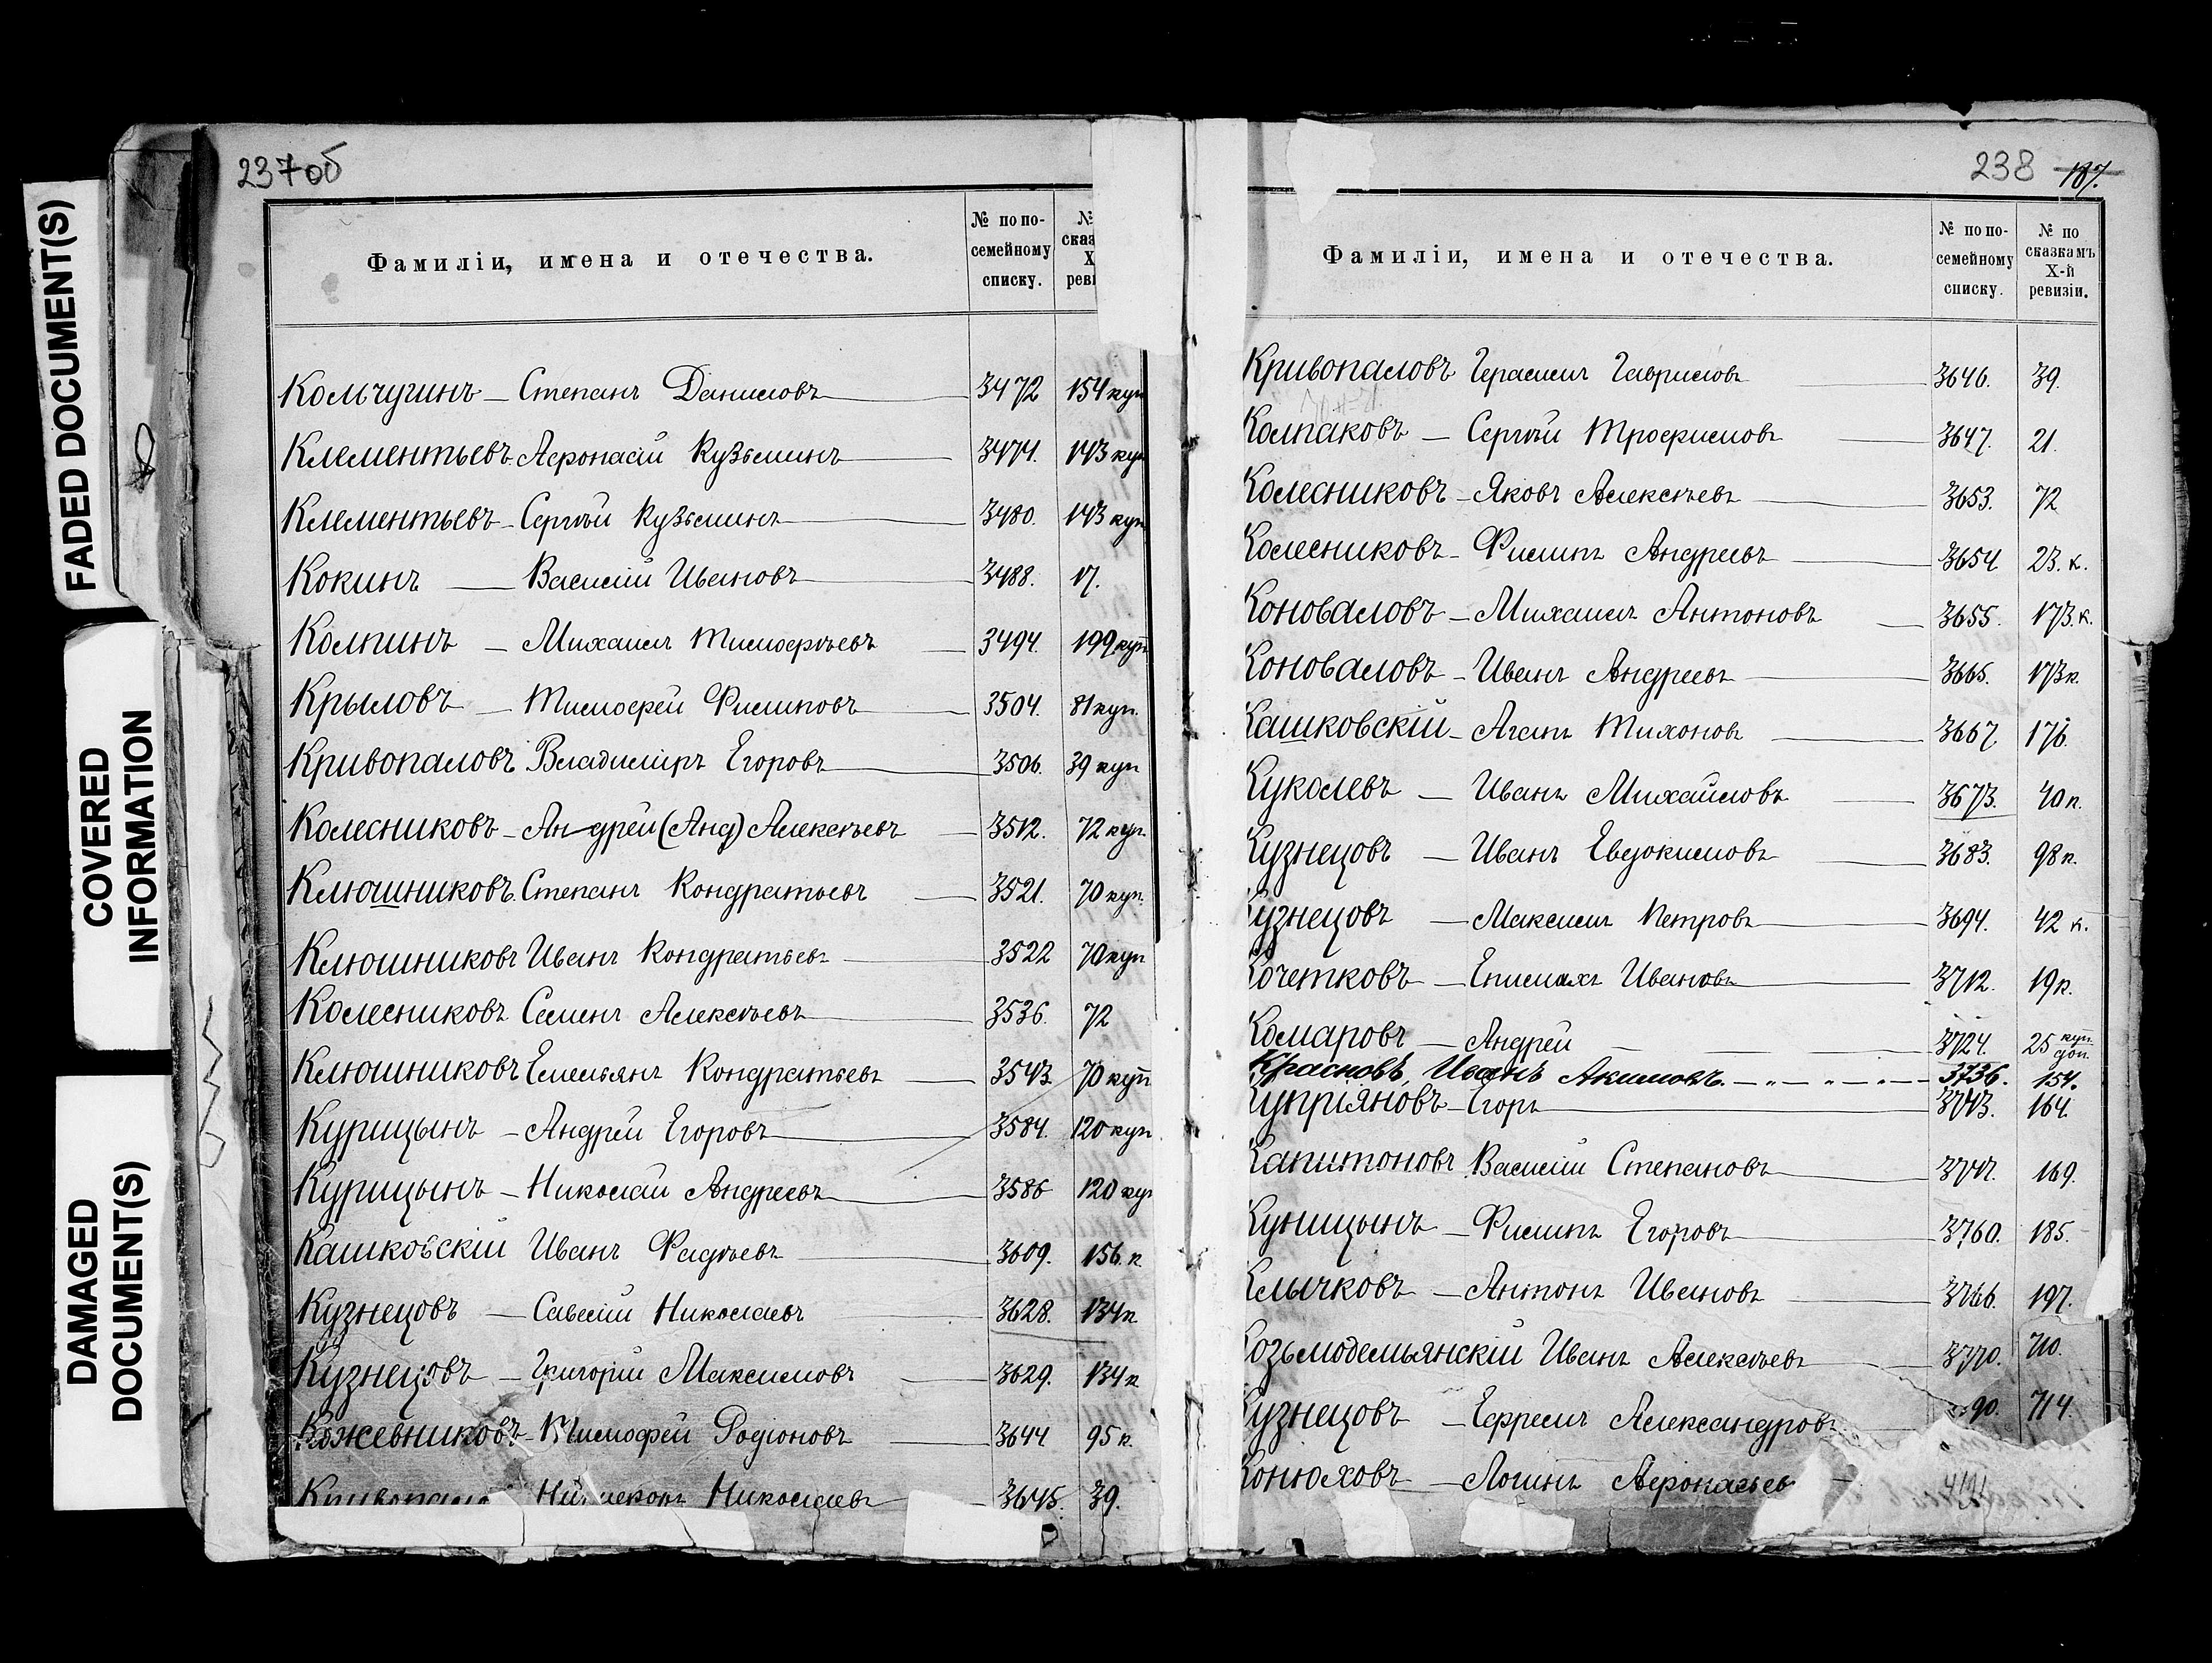 FADED DOCUMENT(S)
COVERED
INFORMATION
DAMAGED
DOCUMENT(S)
237об
Фамиліи, имена и отечества.
№ по по-
семейному
списку.
№
сказ
X
реви
Кольчугинъ – Степанъ Даниловъ 3472 154 куп
Клементьевъ Аѳонасій Кузьминъ 3474. 143 куп
Клементьевъ – Сергѣй Кузьминъ 3480. 143 куп
Кокинъ — Василій Ивановъ 3488. 17.
Колпинъ – Михаилъ Тимофѣевъ 3494. 199 куп
Крыловъ – Тимофей Филиповъ 3504. 81 куп.
Кривопаловъ Владиміръ Егоровъ 3506. 39 куп
Колесниковъ – Андрей (Анд) Алексѣевъ 3512. 72 куп.
Клюшниковъ Степанъ Кондратьевъ 3521. 70 куп.
Клюшниковъ Иванъ Кондратьевъ 3522 70 куп
Колесниковъ Семенъ Алексѣевъ 3536. 72
Клюшниковъ Емельянъ Кондратьевъ 3543 70 куп
Курицынъ – Андрей Егоровъ 3584. 120 куп
Курицынъ – Николай Андреевъ 3586 120 куп
Кашковскій Иванъ Фадѣевъ 3609. 156. к
Кузнецовъ – Савелій Николаевъ 3628. 134 к
Кузнецовъ – Григорій Максимовъ 3629. 134 к
Кожевниковъ – Тимофей Родіоновъ 3644 95 к.
Николаевъ 3645. 39.
238 187.
Фамиліи, имена и отечества.
№ по по-
семейному
списку.
№ по
сказкамъ
X-й
ревизіи.
Кривопаловъ Герасимъ Гавриловъ 3646. 39.
Колпаковъ – Сергѣй Трофимовъ 3647. 21.
Колесниковъ – Яковъ Алексѣевъ 3653. 72
Колесниковъ – Филипъ Андреевъ 3654. 23. к.
Коноваловъ – Михаилъ Антоновъ 3655. 173. к.
Коноваловъ – Иванъ Андреевъ 3665. 173 к.
Кашковскій – Агапъ Тихоновъ 3667. 176.
Куколевъ – Иванъ Михайловъ 3673. 40 к.
Кузнецовъ – Иванъ Евдокимовъ 3683. 98 к.
Кузнецовъ – Максимъ Петровъ 3694. 42 к.
Кочетковъ – Епимахъ Ивановъ 3712. 19 к.
Комаровъ – Андрей 3724. 25 куп. доп.
Красновъ, Иванъ Акимовъ. 3736. 154.
Купріяновъ – Егоръ 3743. 164.
Капитоновъ Василій Степановъ 3747. 169.
Куницынъ – Филипъ Егоровъ 3760. 185.
Клычковъ – Антонъ Ивановъ 3766. 197.
Козьмодемьянскій Иванъ Алексѣевъ 3770. 710.
Кузнецовъ – Ефремъ Александровъ 90. 714.
Конюховъ – Логинъ Аѳонасьев